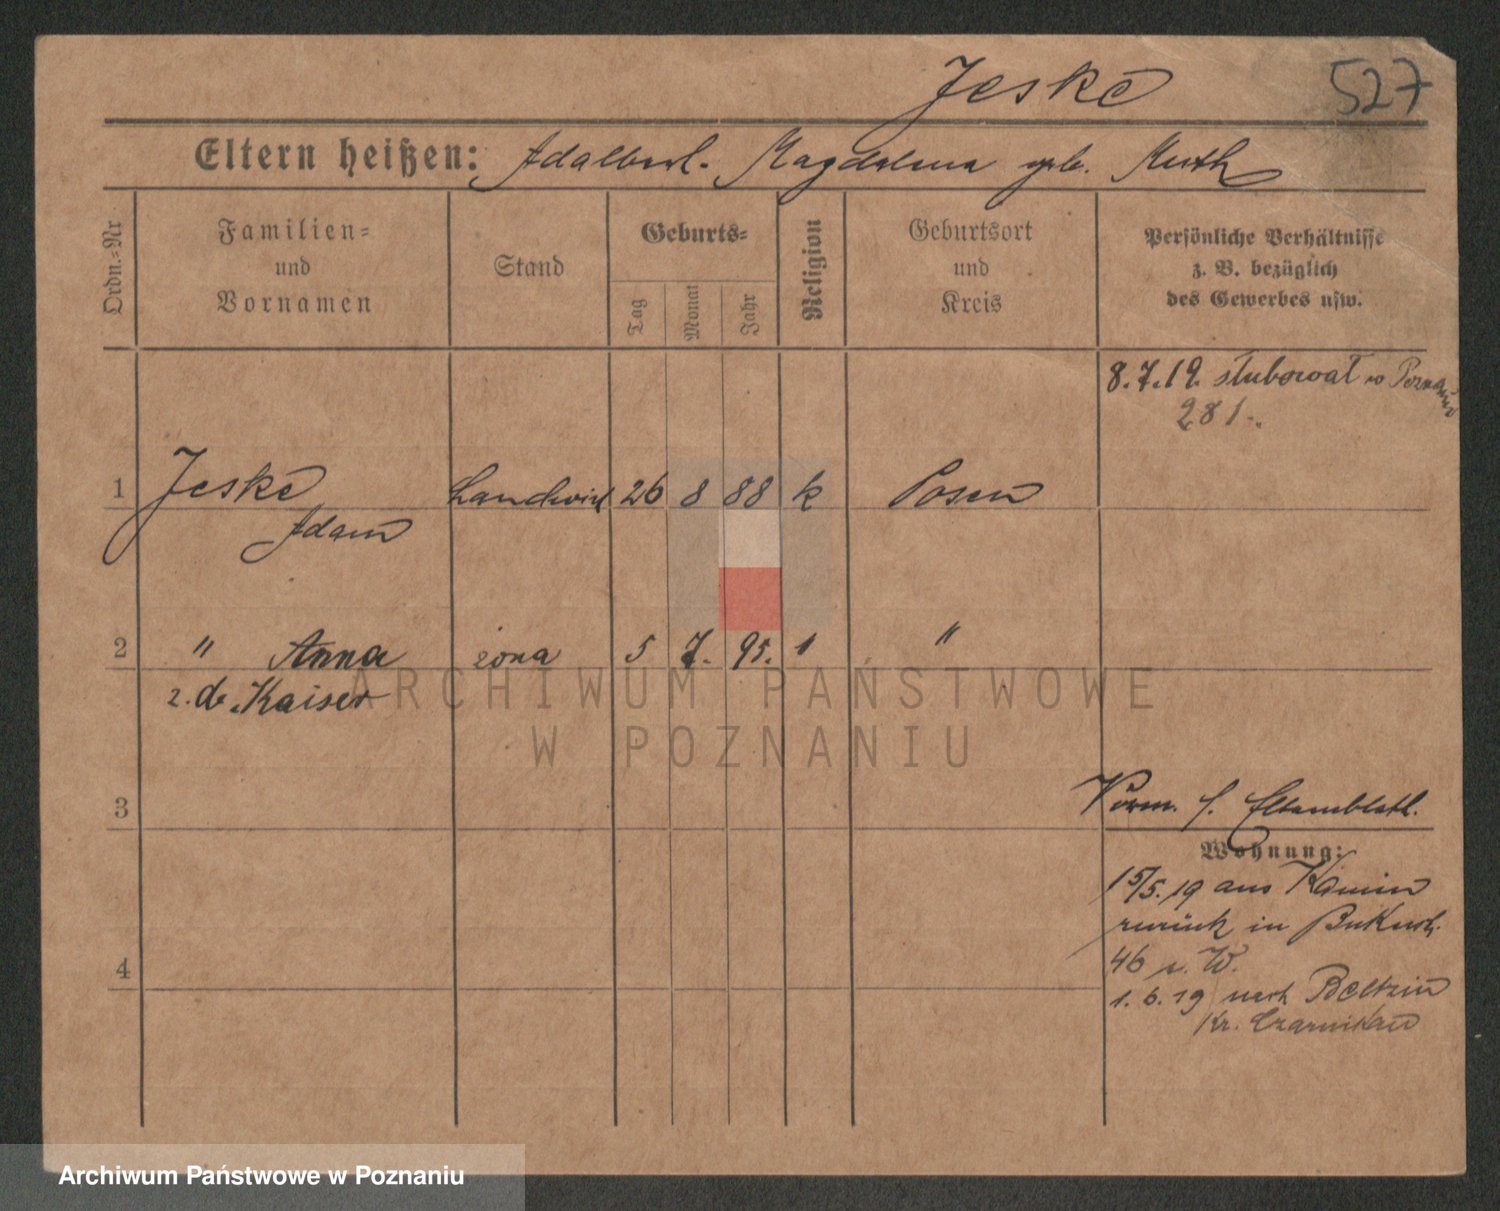 Jeske 527
Eltern heißen: Adalbert. Magdalena geb. Muth
Ordn.-Nr
Familien-
und
Vornamen
Stand
Geburts-
Tag
Monat
Jahr
Religion
Geburtsort
und
Kreis
Persönliche Verhältnisse
z. B. bezüglich
des Gewerbes usw.
8.7.19. ślubował w Poznaniu
281.
1 Jeske Landwirt 26 8 88 k Posen
Adam
2 " Anna żona 5 7. 95. "
z. d. Kaiser
3
Vorm. s. Elternblatt.
Wohnung:
15/5.19 aus Kamin
zurück in Bukerstr.
46 W.
4
1.6.19 nach Beltzin
Kr. Czarnikau
ARCHIWUM PAŃSTWOWE
W POZNANIU
Archiwum Państwowe w Poznaniu